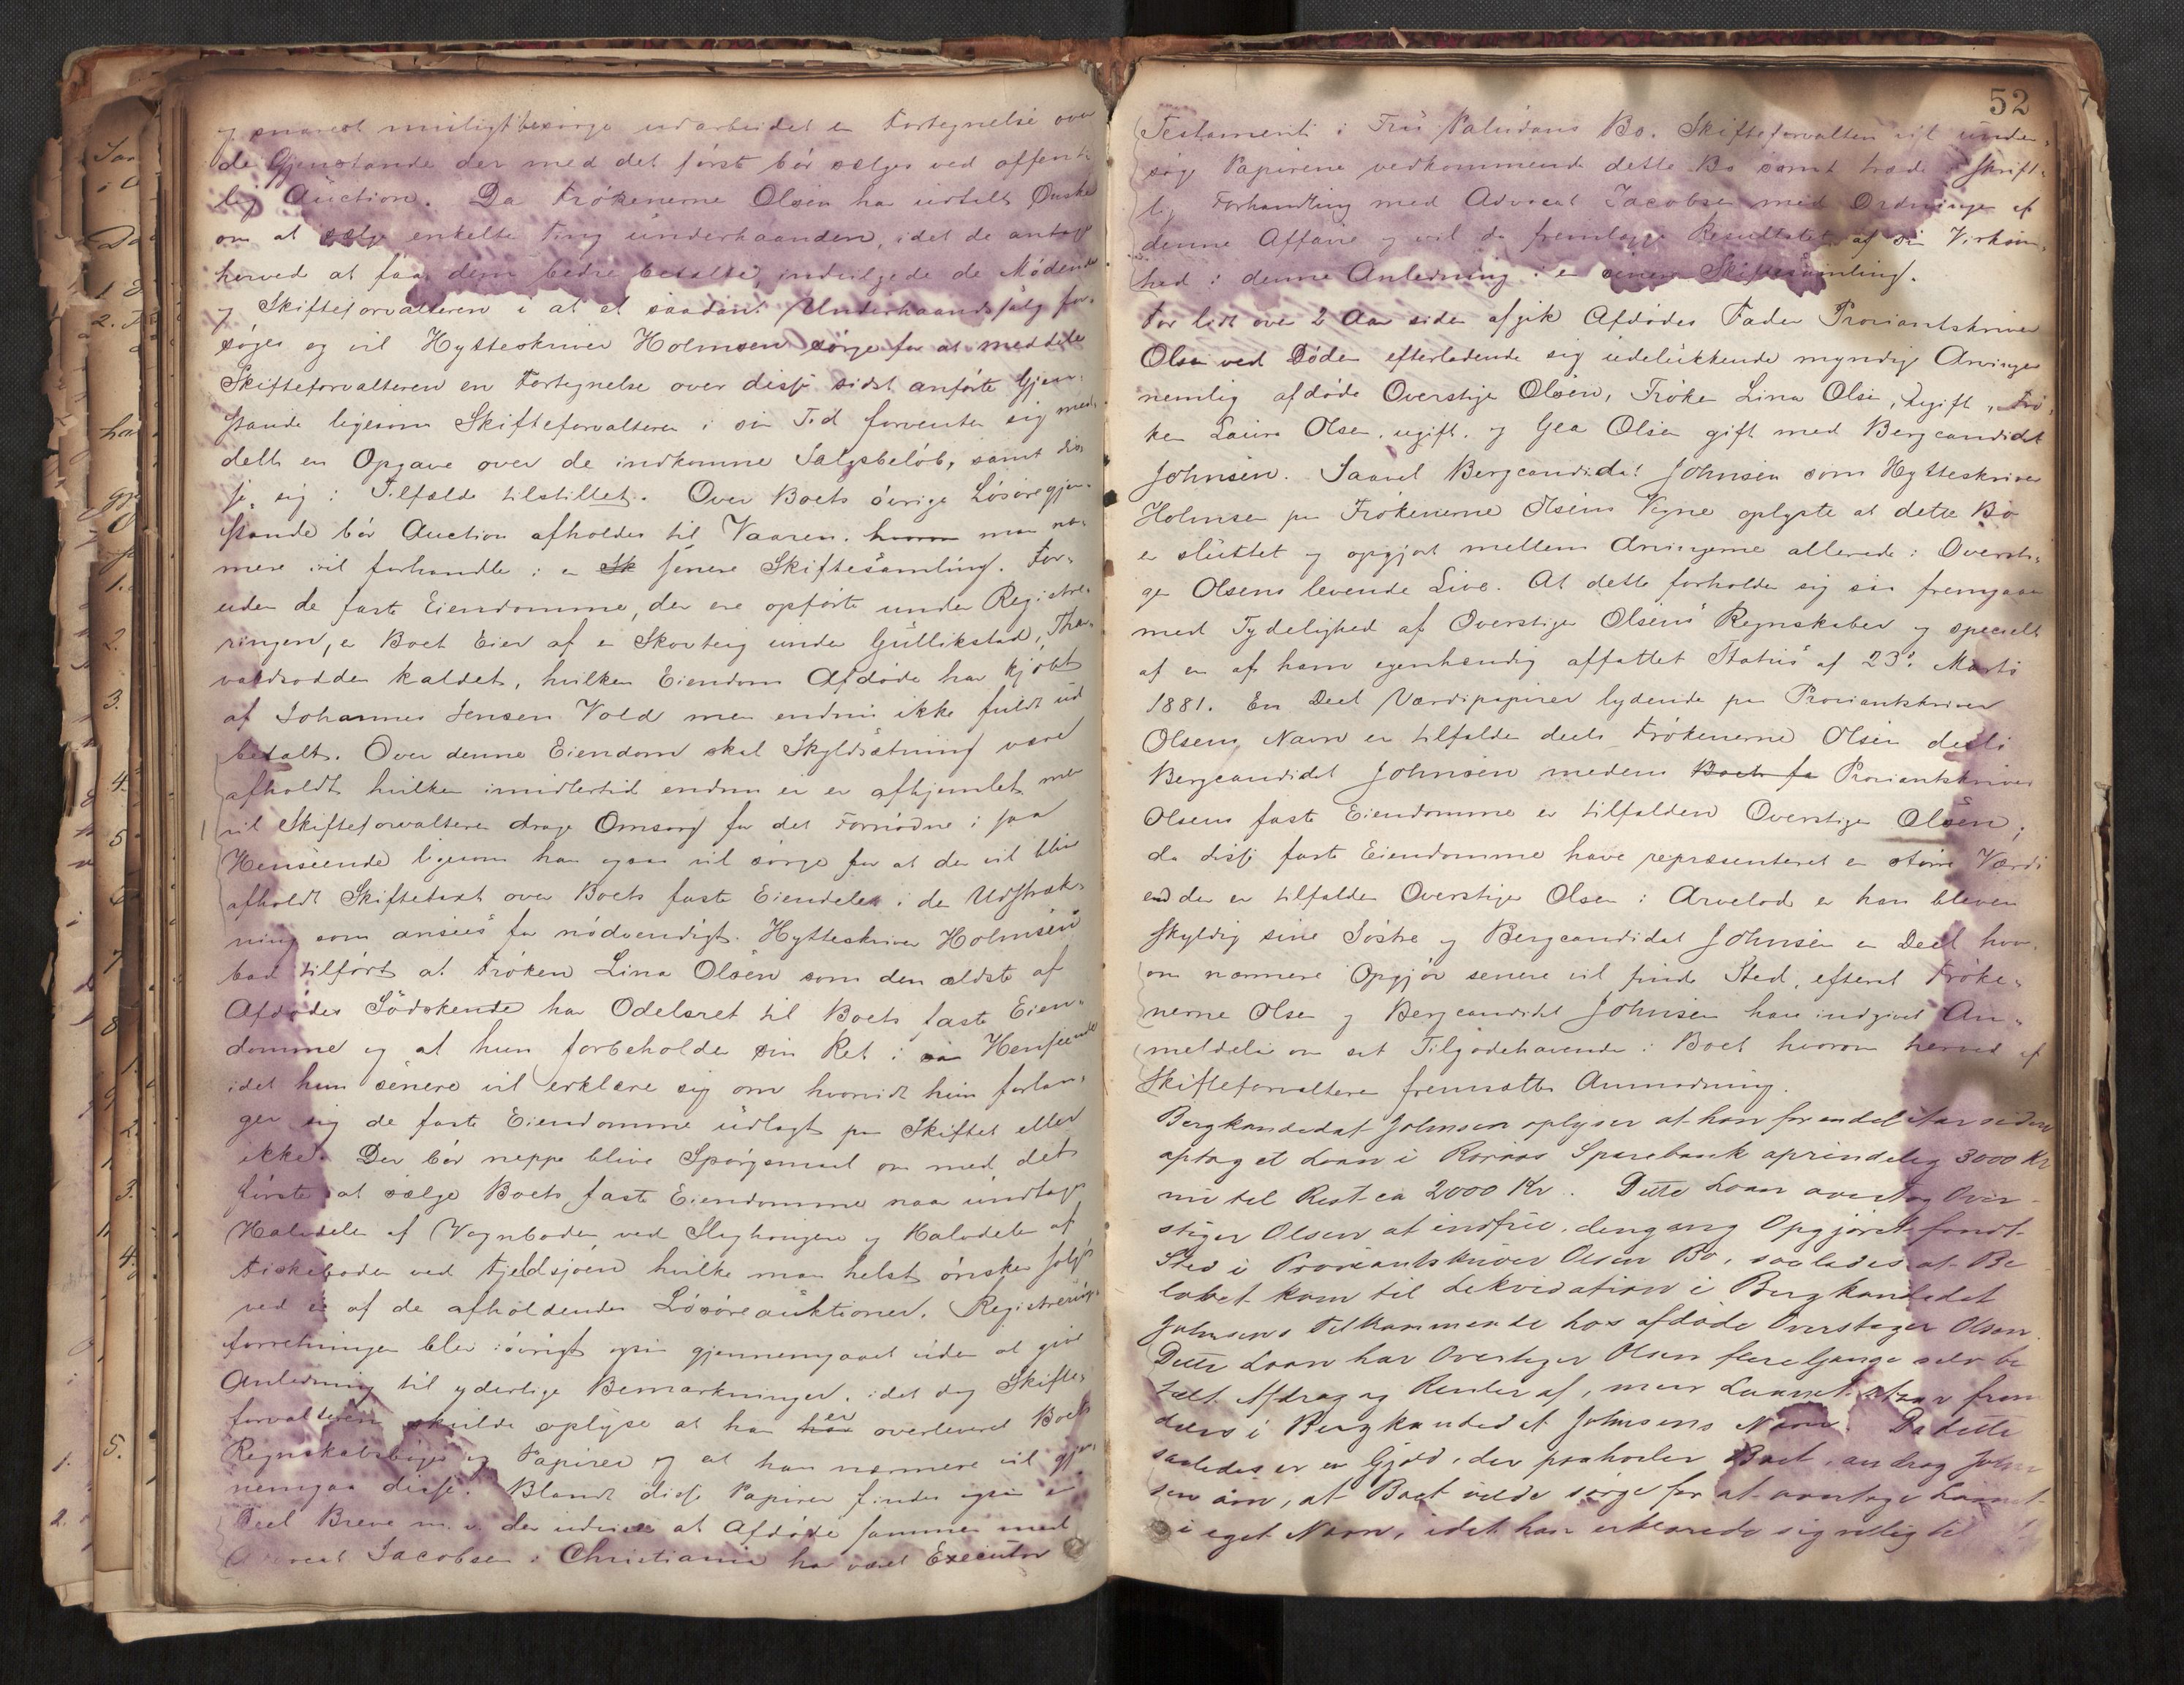 og snarest muligt besørge udarbeidet en Fortegnelse over
de Gjenstande der med det først bør sælges ved offent-
lig Auction. Da Frøkenerne Olsen har udtalt Ønske
om at sælge enkelte Ting underhaanden, idet de antog
herved at faa dem bedre betalte, indvilgede de Mødende
og Skifteforvalteren i at et saadant Underhaandssalg for-
søges og vil Hytteskriver Holmsen sørge for at meddele
Skifteforvalteren en Fortegnelse over disse sidst anførte Gjen-
stande ligesom Skifteforvalteren i sin Tid forventer sig med-
delt en Opgave over de indkomne Salgsbeløb, samt dis-
se sig i Tilfælde tilstillet. Over Boets øvrige Løsøregjen-
stande bør Auction afholdes til Vaaren. hvorom man næ-
mere vil forhandle i en Sk senere Skiftesamling. For-
uden de faste Eiendomme, der ere opførte under Registre-
ringen, er Boet Eier af en Skovteig under Gullikstad, Thor-
valdsodden kaldet, hvilken Eiendom Afdøde har kjøbt
af Johannes Jensen Vold men endnu ikke fuldt ud
betalt. Over denne Eiendom skal Skyldsætning være
afholdt hvilken imidlertid endnu ei er afhjemlet men
vil Skifteforvalteren drage Omsorg for det Fornødne i saa
Henseende ligesom han ogsaa vil sørge for at der vil blive
afholdt Skiftetaxt over Boets faste Eiendele i den Udstræk-
ning som ansees for nødvendigt. Hytteskriver Holmsen
bad tilført at Frøken Lina Olsen som den ældste af
Afdødes Södskende har Odelsret til Boets faste Eien-
domme og at hun forbeholder sin Ret i saa Henseende
idet hun senere vil erklære sig om hvorvidt hun forlan-
ger sig de faste Eiendomme udlagt paa Skiftet eller
ikke. Der bør neppe blive Spørgsmaal om med det
første at sælge Boets faste Eiendomme naar undtages
Halvdelen af Vognboden ved Sleghaugen og Halvdelen af
Fiskeboden ved Fjeldsjøen hvilke man helst ønsker solgt
ved en af de afholdendes Løsøreauktioner. Registrerings-
forretningen blev iøvrigt ogsaa gjennemgaaet uden at give
Anledning til yderlige Bemærkninger. idet dog Skifte-
forvalteren skulde oplyse at han har er overleveret Boets
Regnskabsbøger og Papirer og at han nærmere vil gjen-
nemgaa disse. Blandt disse Papirer findes ogsaa en
Deel Breve m. v. der udvise at Afdøde sammen med
Advocat Jacobsen i Christiania har været Executor
52
Testamenti i Fru Paludans Bo. Skifteforvalteren vil under-
søge Papirene vedkommende dette Bo samt træde i skrift-
lig Forhandling med Advocat Jacobsen med Ordningen af
denne Affaire og vil da fremlægge Resultatet af sin Virksom-
hed i denne Anledning i en senere Skiftesamling.
For lidt over 2 Aar siden afgik Afdødes Fader Proviantskriver
Olsen ved Døden efterladende sig udelukkende myndige Arvinger
nemlig afdøde Overstiger Olsen, Frøken Lina Olsen, ugift, Frø-
ken Laura Olsen. ugift. og Gea Olsen gift med Bergcandidat
Johnsen. Saavel Bergcandidat Johnsen som Hytteskriver
Holmsen paa Frøkenerne Olsens Vegne oplyste at dette Bo
er sluttet og opgjort mellem Arvingerne allerede i Oversti-
ger Olsens levende Live. At dette forholder sig saa fremgaar
med Tydelighed af Overstiger Olsens Regnskaber og specielt
af en af ham egenhændig affattet Status af 23de Marts
1881. En Deel Værdipapirer lydende paa Proviantskriver
Olsens Navn er tilfalden deels Frøkenerne Olsen deels
Bergcandidat Johnsen medens Boets fa Proviantskriver
Olsens faste Eiendomme er tilfalden Overstiger Olsen;
da disse faste Eiendomme have repræsenteret en større Værdi
end der er tilfalden Overstiger Olsen i Arvelod er han bleven
skyldig sine Søstre og Bergcandidat Johnsen en Deel hvor-
om nærmere Opgjør senere vil finde Sted, efterat Frøke-
nerne Olsen og Bergcandidat Johnsen have indgivet An-
meldelse om sit Tilgodehavende i Boet hvorom herved af
Skifteforvalteren fremsættes Anmodning.
Bergkandidat Johnsen oplyser at han for endel Aar siden
optog et Laan i Røraas Sparebank oprindelig 3000 Kr
nu til Rest ca 2000 Kr. Dette Laan overtog Over-
stiger Olsen at indfrie. dengang Opgjøret fandt
Sted i Proviantskriver Olsen Bo, saaledes at Be-
løbet kom til Likvidation i Bergkandidat
Johnsens Tilkommende hos afdøde Overstiger Olsen.
Dette Laan har Overstiger Olsen flere Gange selv be-
talt Afdrag og Renter af, men Laanet staar frem-
deles i Bergkandidat Johnsens Navn. Da dette
saaledes er en Gjæld, der paahviler Boet, androg John-
sen om, at Boet vilde sørge for at overtage Laanet
i eget Navn, idet han erklærede sig villig til